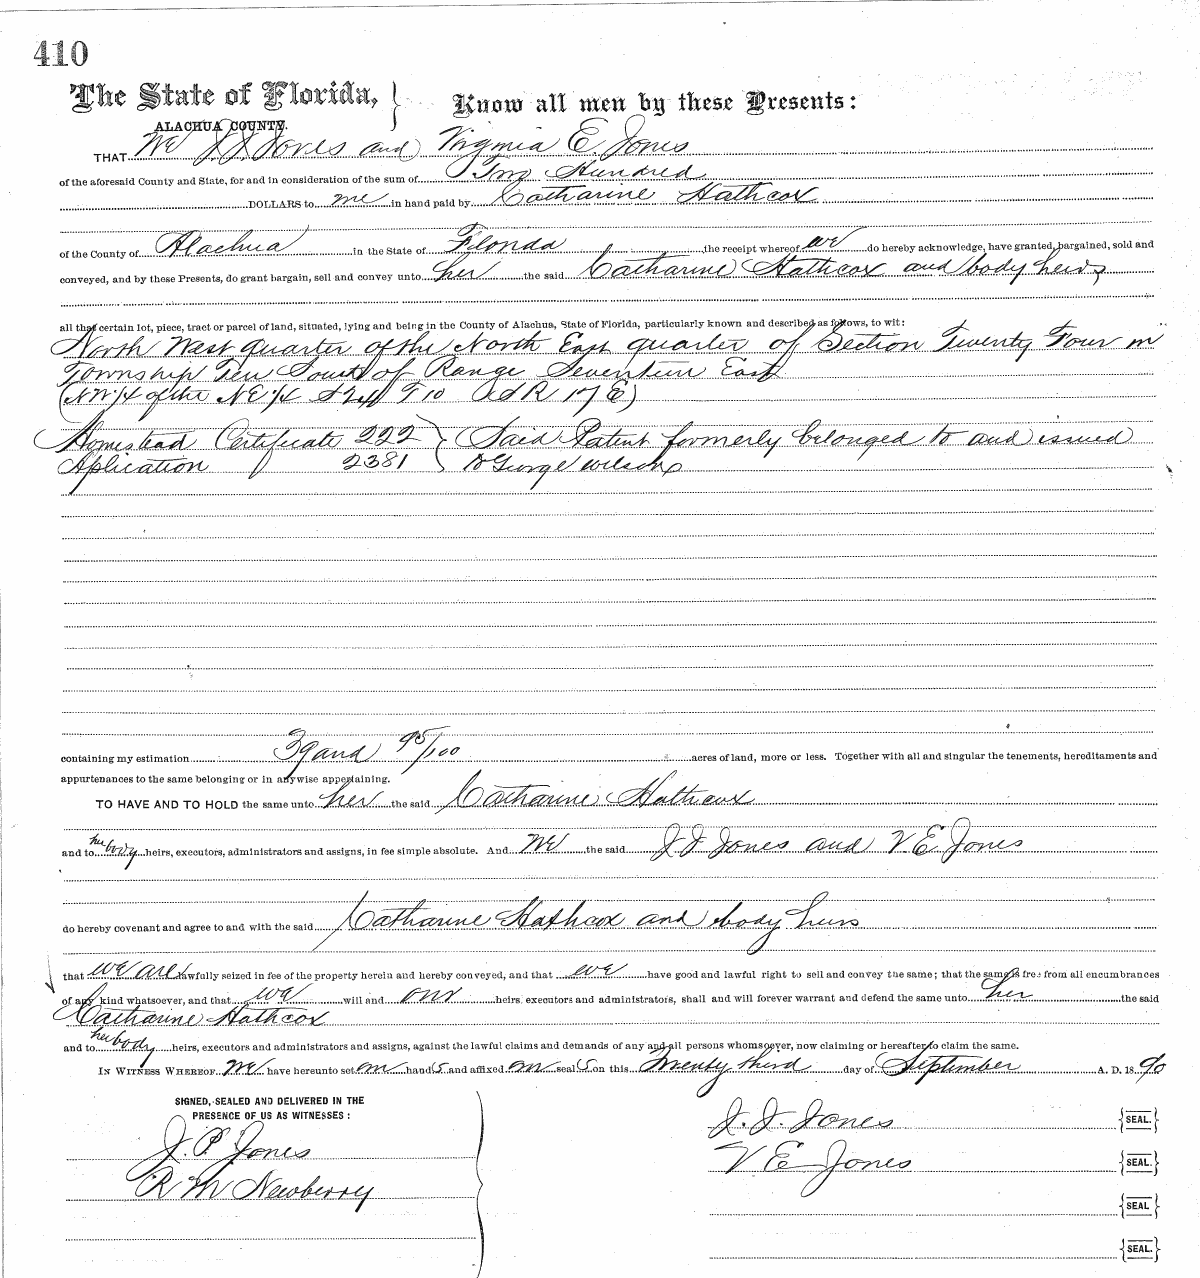 410
The State of Florida, } Know all men by these Presents:
ALACHUA COUNTY.
THAT We J J Jones and Virginia E. Jones
of the aforesaid County and State, for and in consideration of the sum of Two Hundred
DOLLARS to me in hand paid by Catharine Hathcox
of the County of Alachua in the State of Florida the receipt whereof we do hereby acknowledge, have granted, bargained, sold and
conveyed, and by these Presents, do grant bargain, sell and convey unto her the said Catharine Hathcox and body heirs
all that certain lot, piece, tract or parcel of land, situated, lying and being in the County of Alachua, State of Florida, particularly known and described as follows, to wit:
North West quarter of the North East quarter of Section Twenty Four in
Township Ten South of Range Seventeen East
(NW ¼ of the NE ¼ S 24 T 10 S R 17 E)
Homestead Certificate 222 } (Said Patent formerly belonged to and issued
Aplication 2381 } to George Wilson
containing my estimation 39 and 95/100 acres of land, more or less. Together with all and singular the tenements, hereditaments and
appurtenances to the same belonging or in anywise appertaining.
TO HAVE AND TO HOLD the same unto her the said Catharine Hathcox
and to her body heirs, executors, administrators and assigns, in fee simple absolute. And We the said J J Jones and V. E. Jones
do hereby covenant and agree to and with the said Catharine Hathcox and body heirs
that we are lawfully seized in fee of the property herein and hereby conveyed, and that we have good and lawful right to sell and convey the same; that the same is free from all encumbrances
of any kind whatsoever, and that we will and our heirs, executors and administrators, shall and will forever warrant and defend the same unto her the said
Catharine Hathcox
and to her body heirs, executors and administrators and assigns, against the lawful claims and demands of any and all persons whomsoever, now claiming or hereafter to claim the same.
IN WITNESS WHEREOF We have hereunto set our hand s and affixed our seal s on this Twenty third day of September A. D. 18 90
SIGNED, SEALED AND DELIVERED IN THE
PRESENCE OF US AS WITNESSES:
J. J. Jones {SEAL.}
J. P. Jones
V E Jones {SEAL.}
R M Newberry
{SEAL}
{SEAL.}